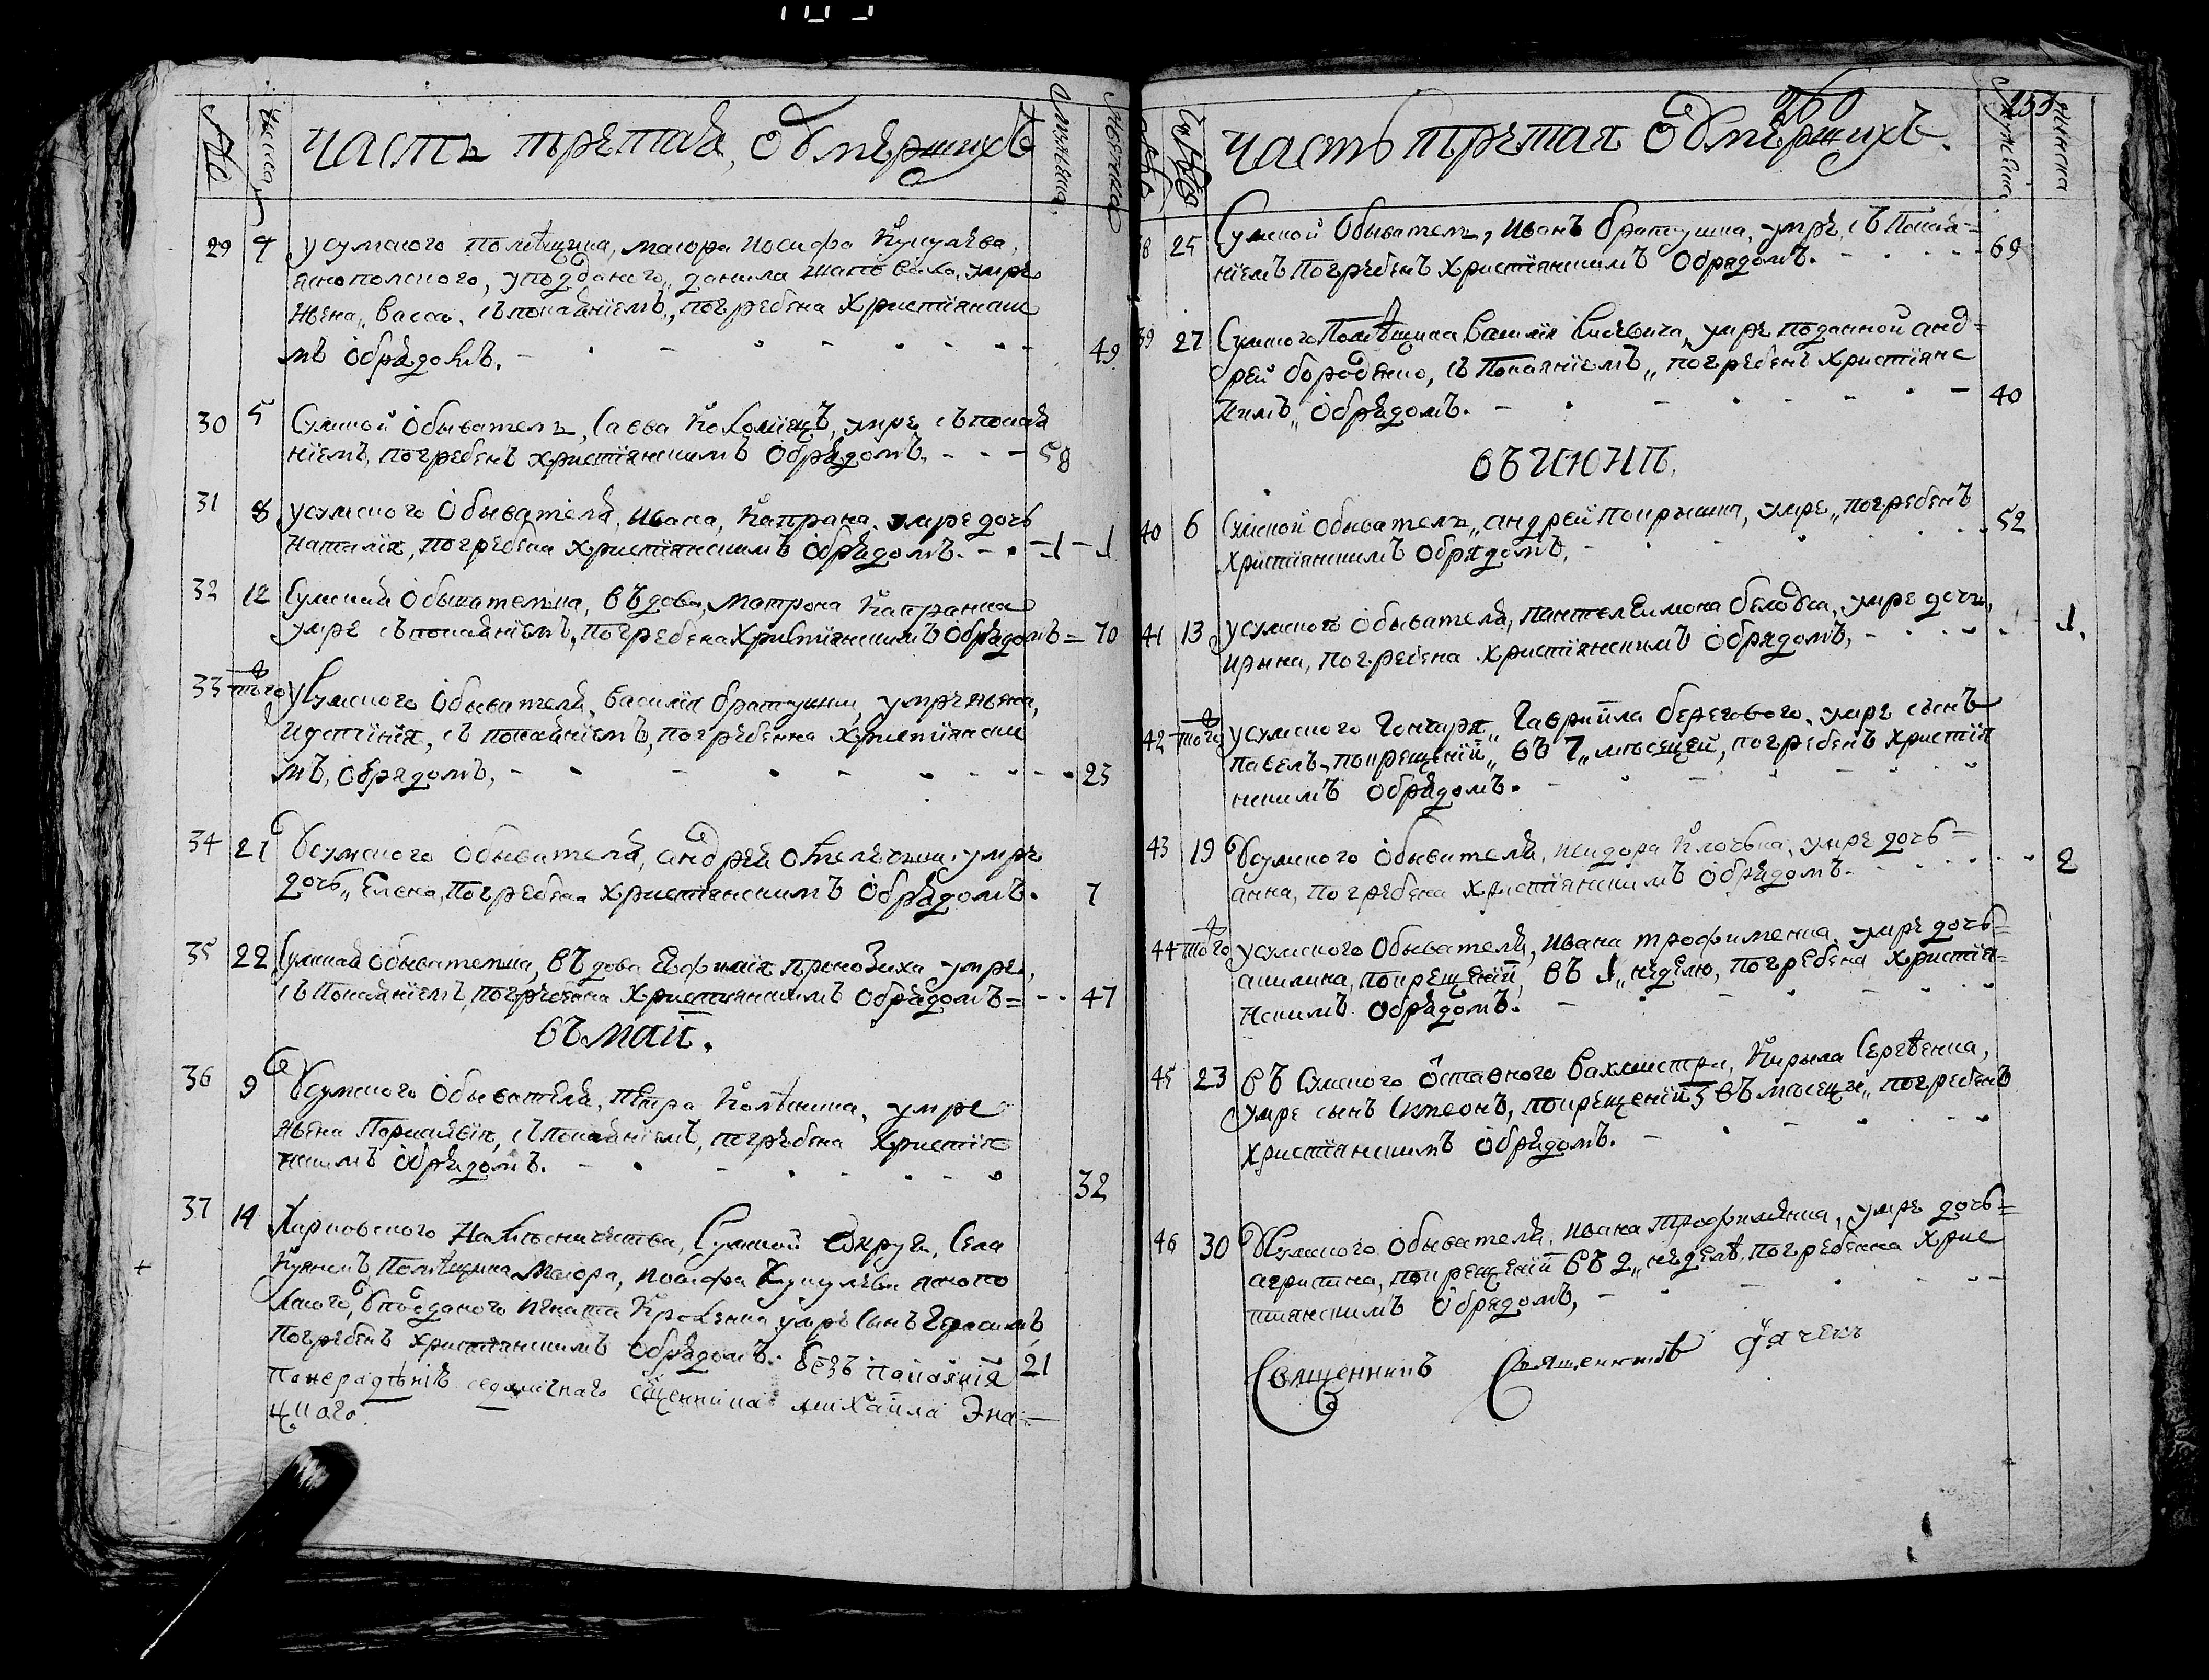 Числа
часть третая, о умершихъ
Мужеска
Женска
29 4 у сумского помѣщика, маіора Иосифа Кукулѣва,
яснополского, у подданого, данила шаповала, умре
жена, васса, съ покаянїемъ, погребена Христїянски
мъ обрядомъ. 49
30 5 Сумской обыватель, Савва Коломїецъ, умре съ покая
нїемъ, погребенъ христїянскимъ обрядомъ. 58
31 8 у сумского обывателя, ивана, Капрана, умре дочь
наталїя, погребена христїянскимъ обрядомъ. 1
32 12 Сумская обывателка, въдова, матрона Капранка
умре съ покаянїемъ, погребена Христїянскимъ обрядомъ 70
33 того у Сумского обывателя, василїя братушки, умре жена,
иустинїя, съ покаянїемъ, погребенна Христїянски
мъ, обрядомъ, 23
34 21 У сумского обывателя, андрея умре
дочь, Елена, погребена христїянскимъ обрядомъ. 7
35 22 Сумская обывателка, въдова Ефимїя умре,
съ покаянїемъ, погребена Христїянскимъ обрядомъ 47
въ маїи.
36 9 У сумского обывателя, петра умре
жена съ покаянїемъ, погребена Христїя
нскимъ обрядомъ. 32
37 14 Харковского намѣсничества, Сумской округи, Села
помѣщика маіора, иосифа Кукулѣва яснопо
лского, у подданого игната умре сынъ Герасимъ,
погребенъ христїянскимъ обрядомъ. безъ покаянїя 21
понерадѣнїю седмичнаго сщенника михаила Зна
цкаго.
260
233
Число
часть третая о умершихъ.
Мужеска
Женска
38 25 Сумской обыватель, иванъ братушка, умре, съ покая=
нїемъ погребенъ христїянскимъ обрядомъ. 69
39 27 Сумского помѣщика василїя умре подданой анд=
рей бороденко, съ покаянїемъ, погребенъ христїянс
кимъ, обрядомъ. 40
въ июнѣ.
40 6 Сумской обыватель, андрей покрышка, умре, погребенъ 52
христїянскимъ обрядомъ,
41 13 у сумского обывателя, пантелеимона умре дочь, 1.
ирына, погребена христїянскимъ обрядомъ,
42 того у сумского Гончара, Гаврїила берегового, умре сынъ
павелъ, покрещенїи, въ 7, мѣсецей, погребенъ христїя
нскимъ обрядомъ.
43 19 У сумского обывателя, исидора Клочька, умре дочь= 2
анна, погребена христїянскимъ обрядомъ.
44 того у сумского обывателя, ивана трофименка, умре дочь=
акилина, покрещенїи, въ 1, неделю, погребена христїя=
нскимъ обрядомъ.
45 23 въ Сумского оставного вахмистра, Кирыла Сергѣенка,
умре сынъ Симеонъ, покрещенїи 5 въ мѣсецы, погребенъ
христїянскимъ обрядомъ.
46 30 У Сумского обывателя, ивана трофименка, умре дочь=
агрипина, покрещенїи въ 2, неделѣ, погребенна хрис
тїянскимъ обрядомъ,
Священникъ Священникъ дячекъ